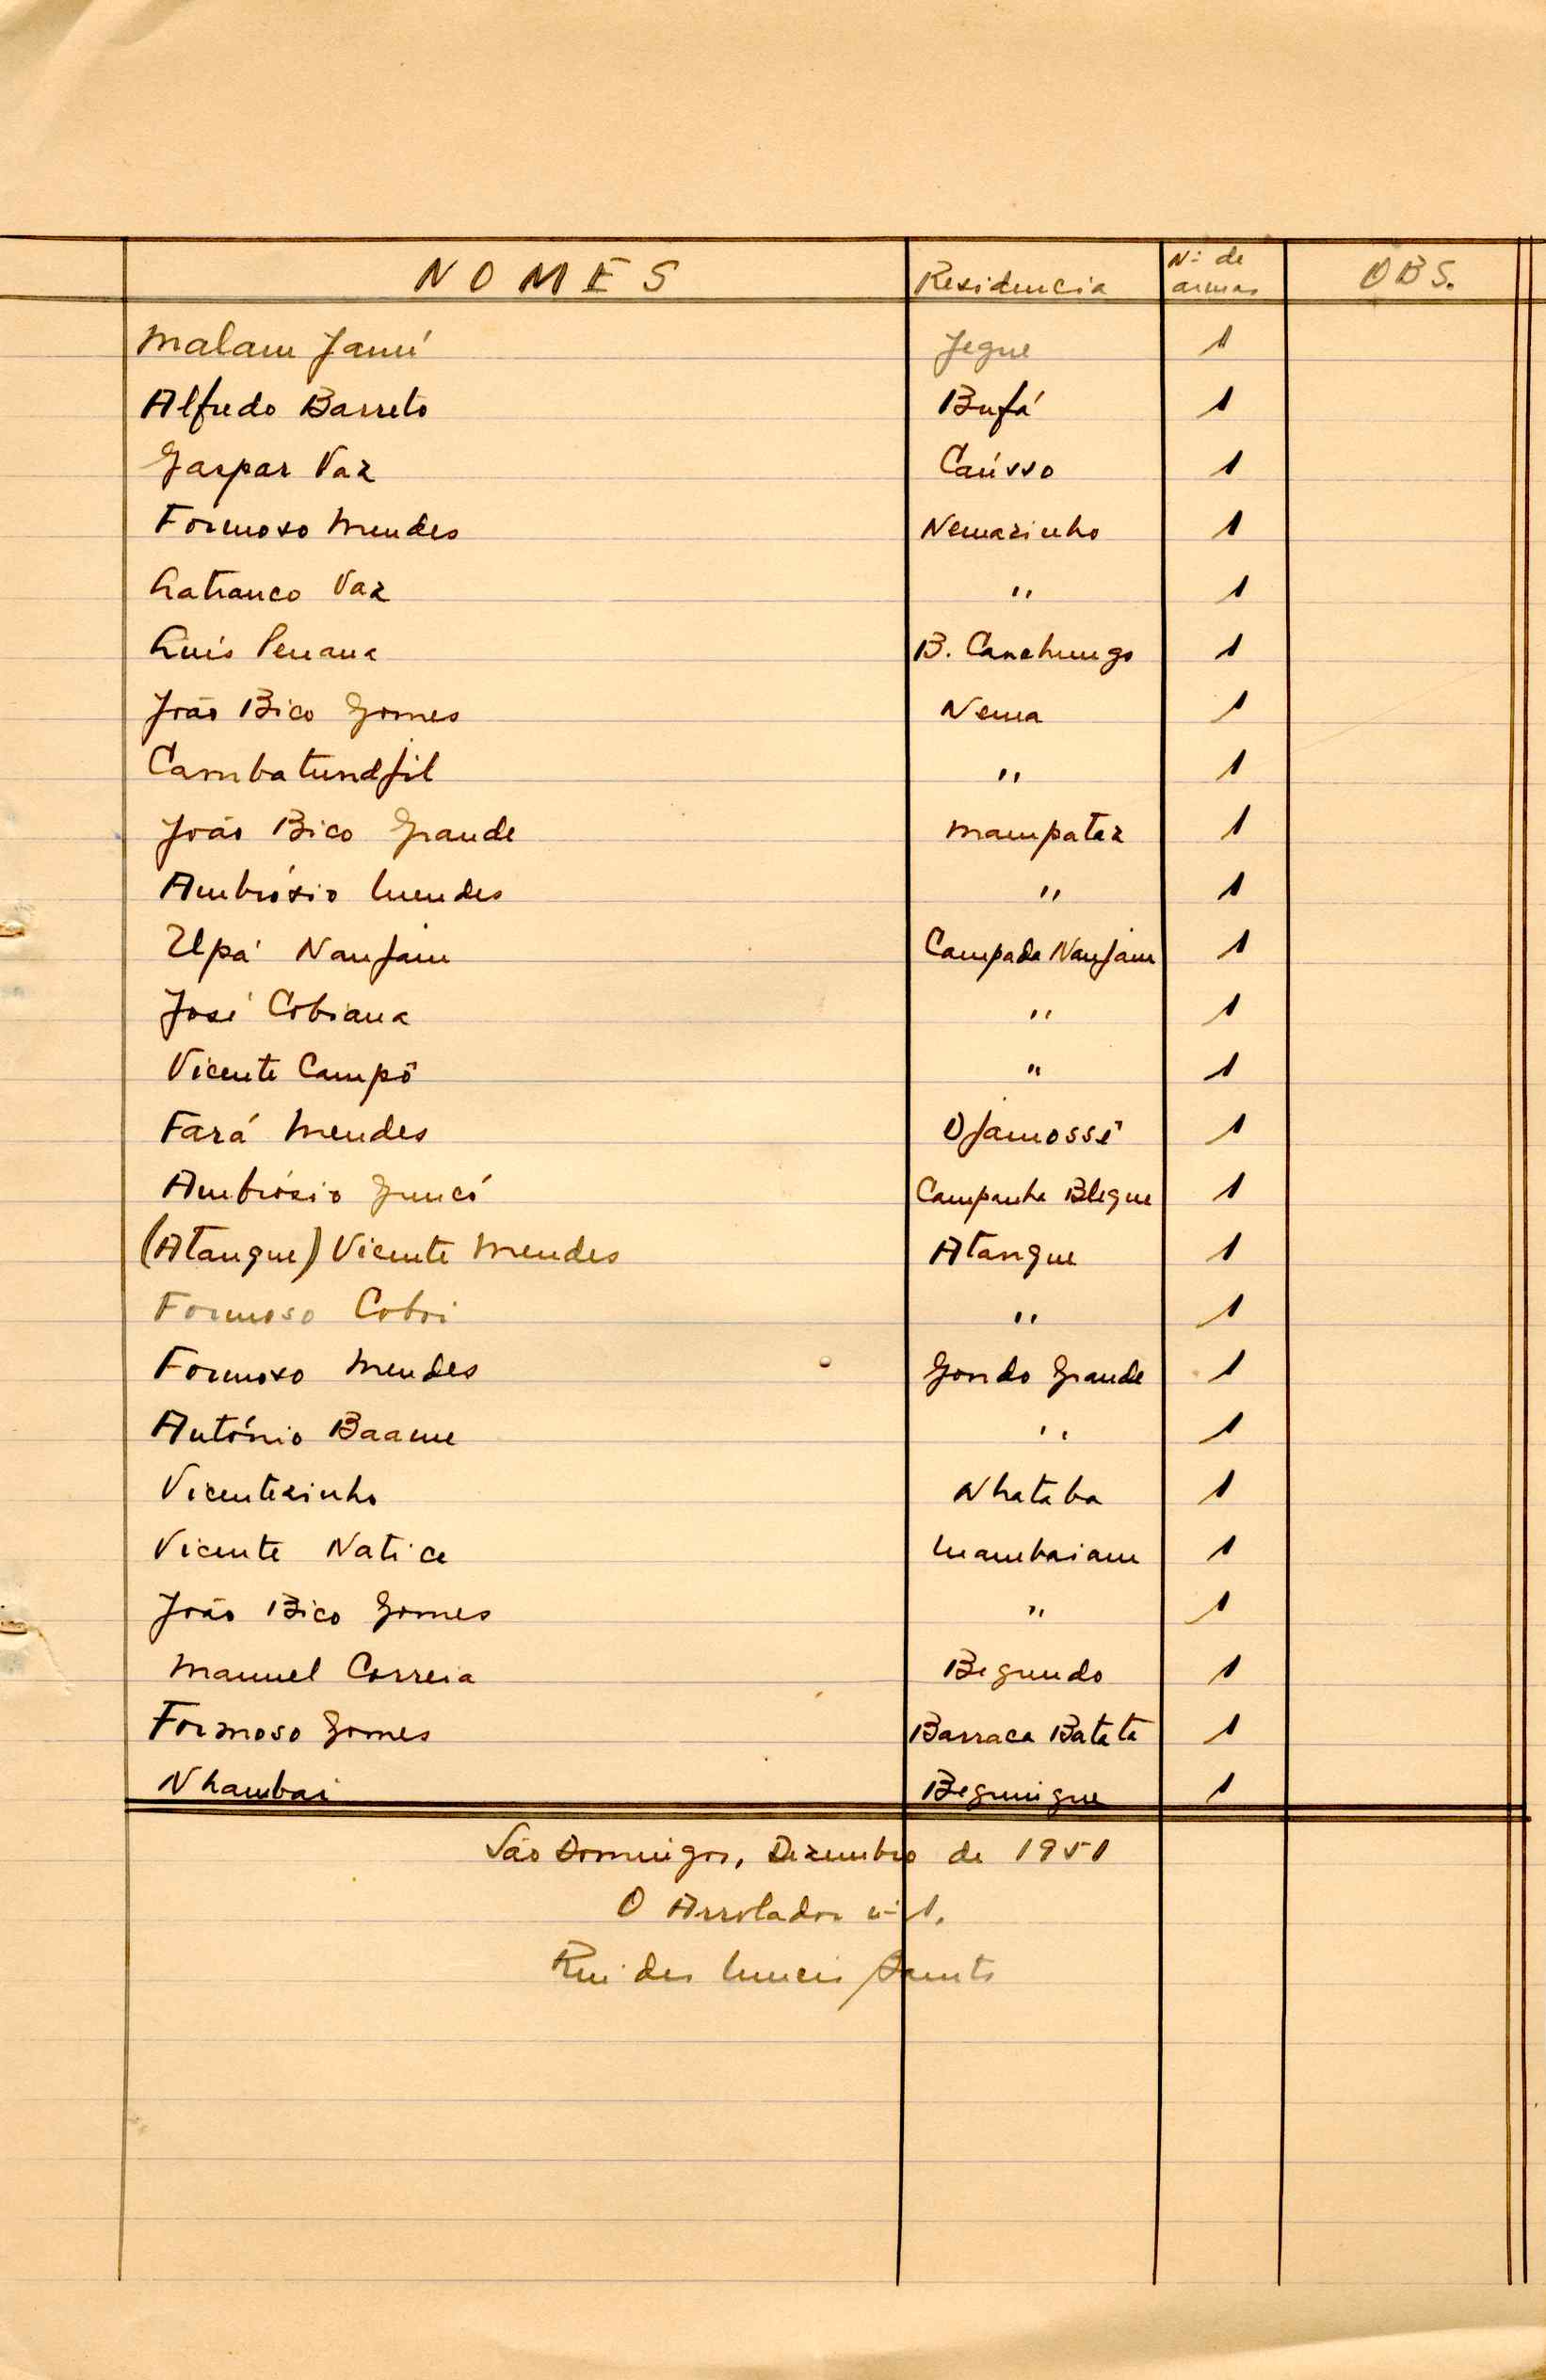 NOMES Residencia Nº de armas OBS.
Malam Jamú Jegue 1
Alfredo Barreto Bufá 1
Gaspar Vaz Caússo 1
Formoso Mendes Nemazinho 1
Latranco Vaz " 1
Luís Penana B. Canchungo 1
João Bico Gomes Nema 1
Cambatundjil " 1
João Bico Grande Mampataz 1
Ambrósio Mendes " 1
Upá Nanjam Campada Nanjam 1
José Cobiana " 1
Vicente Campô " 1
Fará Mendes Djamossé 1
Ambrósio Campanha Blegue 1
(Atangue) Vicente Mendes Atangue 1
Formoso Coboi " 1
Formoso Mendes Gondo Grande 1
António Baame " 1
Vicentezinho Nhataba 1
Vicente Natice Mambaiam 1
João Bico Gomes " 1
Manuel Correia Begundo 1
Formoso Gomes Barraca Batata 1
Nhambai Begunigue 1
São Domingos, Dezembro de 1951
O Arrolador nº 1.
Rui